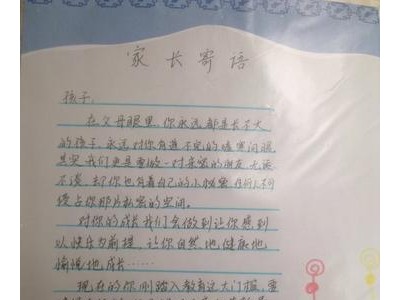 家长寄语
孩子，
在父母眼里，你永远都是长不大
的孩子，永远对你有道不完的嘘寒问暖
其实我们更是要做一对亲密的朋友，无话
不谈，却你也有着自己的小秘密，任何人不可
侵占你那片私密的空间。
对你的成长我们会做到让你感到
以快乐为前提，让你自然地，健康地
愉悦地成长……
现在的你刚踏入教育这大门槛，